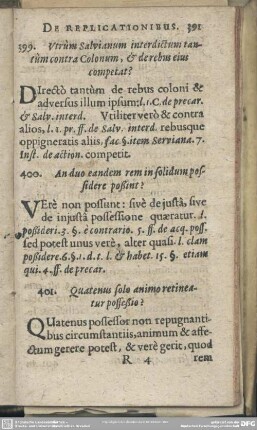 DE REPLICATIONIBUS. 391
399. Utrùm Salvianum interdictum tan-
tùm contra Colonum, & de rebus eius
competat?
DIrectò tantùm de rebus coloni &
adversus illum ipsum; l. 1. C. de precar.
& Salv. interd. Vtiliter verò & contra
alios, l. 1. pr. ff. de Salv. interd. rebusque
oppigneratis aliis, fac. §. item Serviana. 7.
Inst. de action. competit.
400. An duo eandem rem in solidum pos-
sidere possint?
VErè non possunt: sivè de justâ, sive
de injustâ possessione quæratur. l.
possideri. 3. §. è contrario. 5. ff. de acq. poss.
sed potest unus verè, alter quasi. l. clam
possidere. 6. §. 1. d. t. l. & habet. 15. §. etiam
qui. 4. ff. de precar.
401. Quatenus solo animo retinea-
tur possessio?
QUatenus possessor non repugnanti-
bus circumstantiis, animum & affe-
ctum gerere potest, & verè gerit, quod
R 4 rem